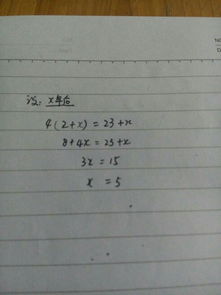 设：x年后
4(2+x)=23+x
8+4x=23+x
3x=15
x=5